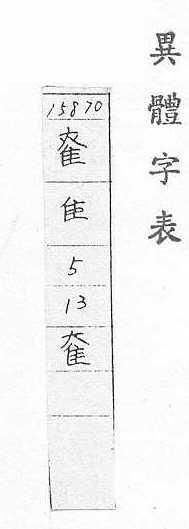 異體字表
15870
隹
5
13
奞